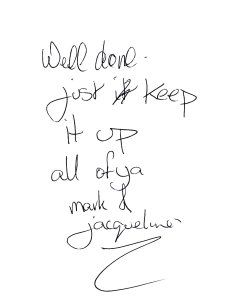 Well done.
just keep
it up
all of ya
mark &
jacqueline